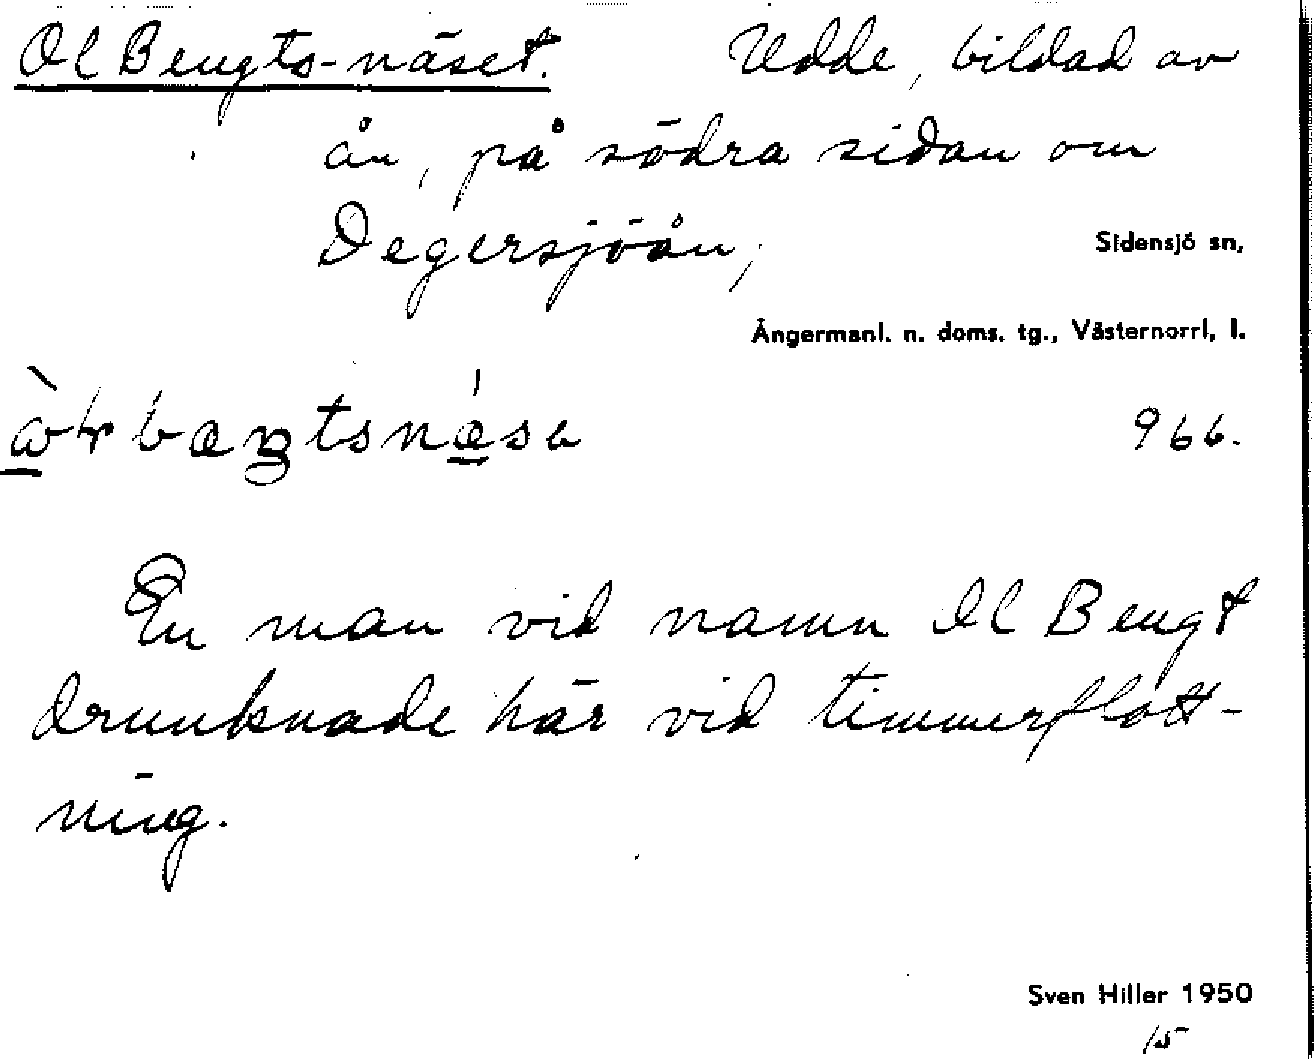 Ol Bengts-näset. Udde, bildad av
ån, på södra sidan om
Degersjöån,
Sidensjö sn,
Ångermanl. n. doms. tg., Västernorrl, l.
966.
En man vid namn Ol Bengt
drunknade här vid timmerflott-
ning.
Sven Hiller 1950
15